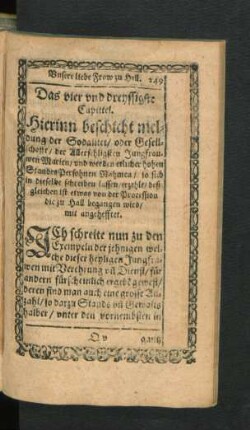 Vnsere liebe Frow zu Hell. 249
Das vier vnd dreyssigste
Capittel.
Hierinn beschicht mel-
dung der Sodalitet / oder Gesell-
schafft / der Allerseligsten Jungfrau-
wen Marien / vnd werden etlicher hohen
Stands Persohnen Nahmen / so sich
in dieselbe schreiben lassen / erzehlt: deß
gleichen ist etwas von der Procession
die zu Hall begangen wird /
mit angehefftet.
ICh schreite nun zu den
Exempeln der jehnigen wel-
che dieser heyligen Jungfra-
wen mit Verehrung vñ Dienst / für
andern fürscheinlich ergebt gewest /
deren find man auch eine grosse An-
zahl / so darzu Stands vñ Gewalts
halber / vnter den vornembsten in
Q v gantz